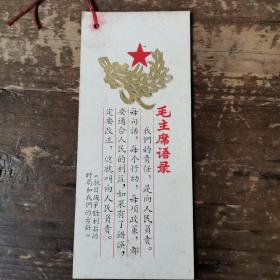 毛主席语录
我們的責任，是向人民負責。
每句話，每个行动，每項政策，都
要适合人民的利益，如果有了錯誤，
定要改正，这就叫向人民負責。
《抗日战爭胜利后的
时局和我們的方針》